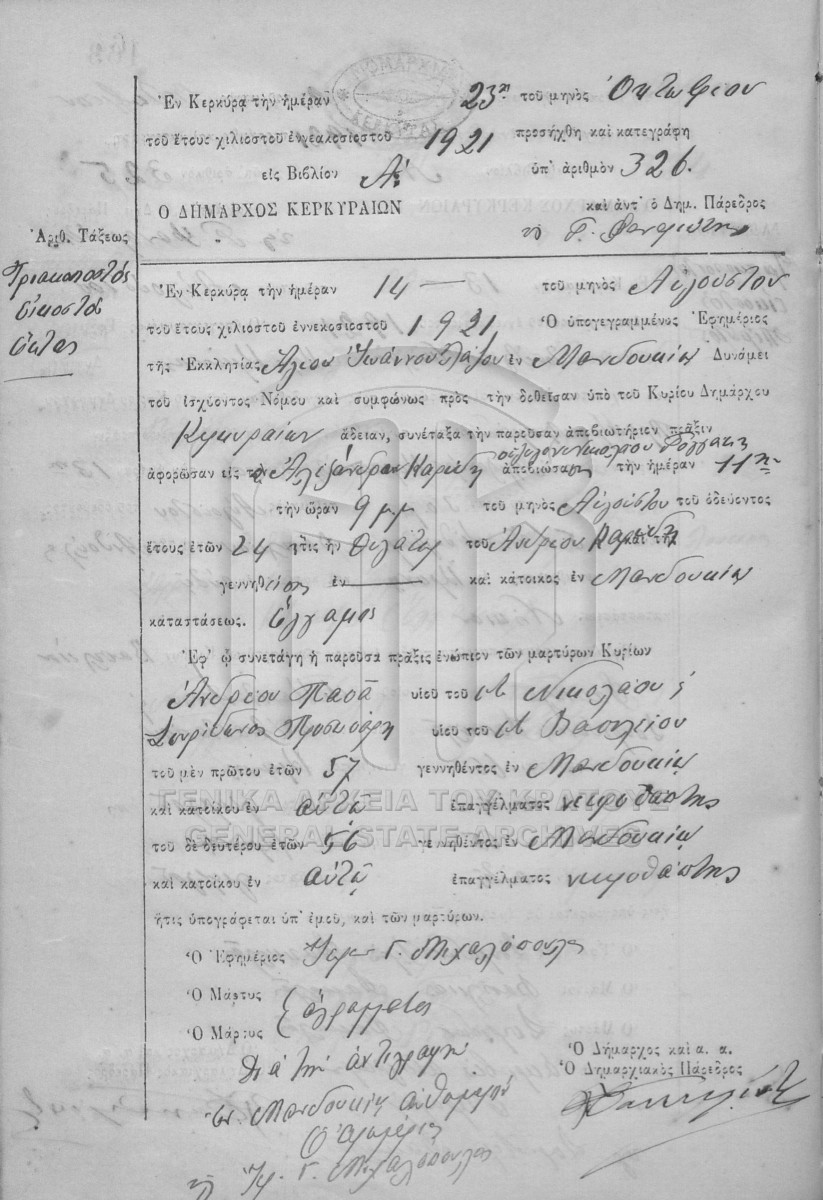 ΔΗΜΑΡΧΙΑ
ΚΕΡΚΥΡΑΣ
Ἐν Κερκύρᾳ τὴν ἡμέραν 23ην τοῦ μηνὸς Ὀκτωβρίου
τοῦ ἔτους χιλιοστοῦ ἐννεακοσιοστοῦ 1921 προσήχθη καὶ κατεγράφη
εἰς Βιβλίον Α΄. ὑπ᾽ ἀριθμὸν 326.
Ο ΔΗΜΑΡΧΟΣ ΚΕΡΚΥΡΑΙΩΝ καὶ ἀντ᾽ ὁ Δημ. Πάρεδρος
Ἀριθ. Τάξεως
Τριακοσιοστὸς
εἰκοστὸς
ἕκτος
Ἐν Κερκύρᾳ τὴν ἡμέραν 14 — τοῦ μηνὸς Αὐγούστου
τοῦ ἔτους χιλιοστοῦ ἐννεκοσιοστοῦ 1921 Ὁ ὑπογεγραμμένος Ἐφημέριος
τῆς Ἐκκλησίας Ἁγίου Ἰωάννου ἐν Μανδουκίῳ Δυνάμει
τοῦ ἰσχύοντος Νόμου καὶ συμφώνως πρὸς τὴν δοθεῖσαν ὑπὸ τοῦ Κυρίου Δημάρχου
Κερκυραίων ἄδειαν, συνέταξα τὴν παροῦσαν ἀποβιωτήριον πρᾶξιν
ἀφορῶσαν εἰς τ Ἀλεξάνδραν ἀποβιώσασαν τὴν ἡμέραν 11ην
τὴν ὥραν 9 μμ τοῦ μηνὸς Αὐγούστου τοῦ ὁδεύοντος
ἔτους ἐτῶν 24 ἥτις ἦν θυγάτηρ τοῦ Ἀνδρέου
γεννηθείσης ἐν — καὶ κάτοικος ἐν Μανδουκίῳ
καταστάσεως. ἔγγαμος
Ἐφ᾽ ᾧ συνετάγη ἡ παροῦσα πρᾶξις ἐνώπιον τῶν μαρτύρων Κυρίων
Ἀνδρέου Πασᾶ υἱοῦ τοῦ Νικολάου ς
Σπυρίδωνος υἱοῦ τοῦ Βασιλείου
τοῦ μὲν πρώτου ἐτῶν 57 γεννηθέντος ἐν Μανδουκίῳ
ΓΕΝΙΚΑ ΑΡΧΕΙΑ ΤΟΥ ΚΡΑΤΟΥΣ
καὶ κατοίκου ἐν αὐτῷ ἐπαγγέλματος νεκροθάπτης
GENERAL STATE ARCHIVES
τοῦ δὲ δευτέρου ἐτῶν 56 γεννηθέντος ἐν Μανδουκίῳ
καὶ κατοίκου ἐν αὐτῷ ἐπαγγέλματος νεκροθάπτης
ἥτις ὑπογράφεται ὑπ᾽ ἐμοῦ, καὶ τῶν μαρτύρων.
Ὁ Ἐφημέριος Ἱερ. Γ. Μιχαλόπουλος
Ὁ Μάρτυς ἀγράμματοι
Ὁ Μάρτυς
Διὰ τὴν ἀντιγραφὴν
Ἐν Μανδουκίῳ αὐθημερόν
Ὁ ἐφημέριος
Ἱερ. Γ. Μιχαλόπουλος
Ὁ Δήμαρχος καὶ α. α.
Ὁ Δημαρχιακὸς Πάρεδρος